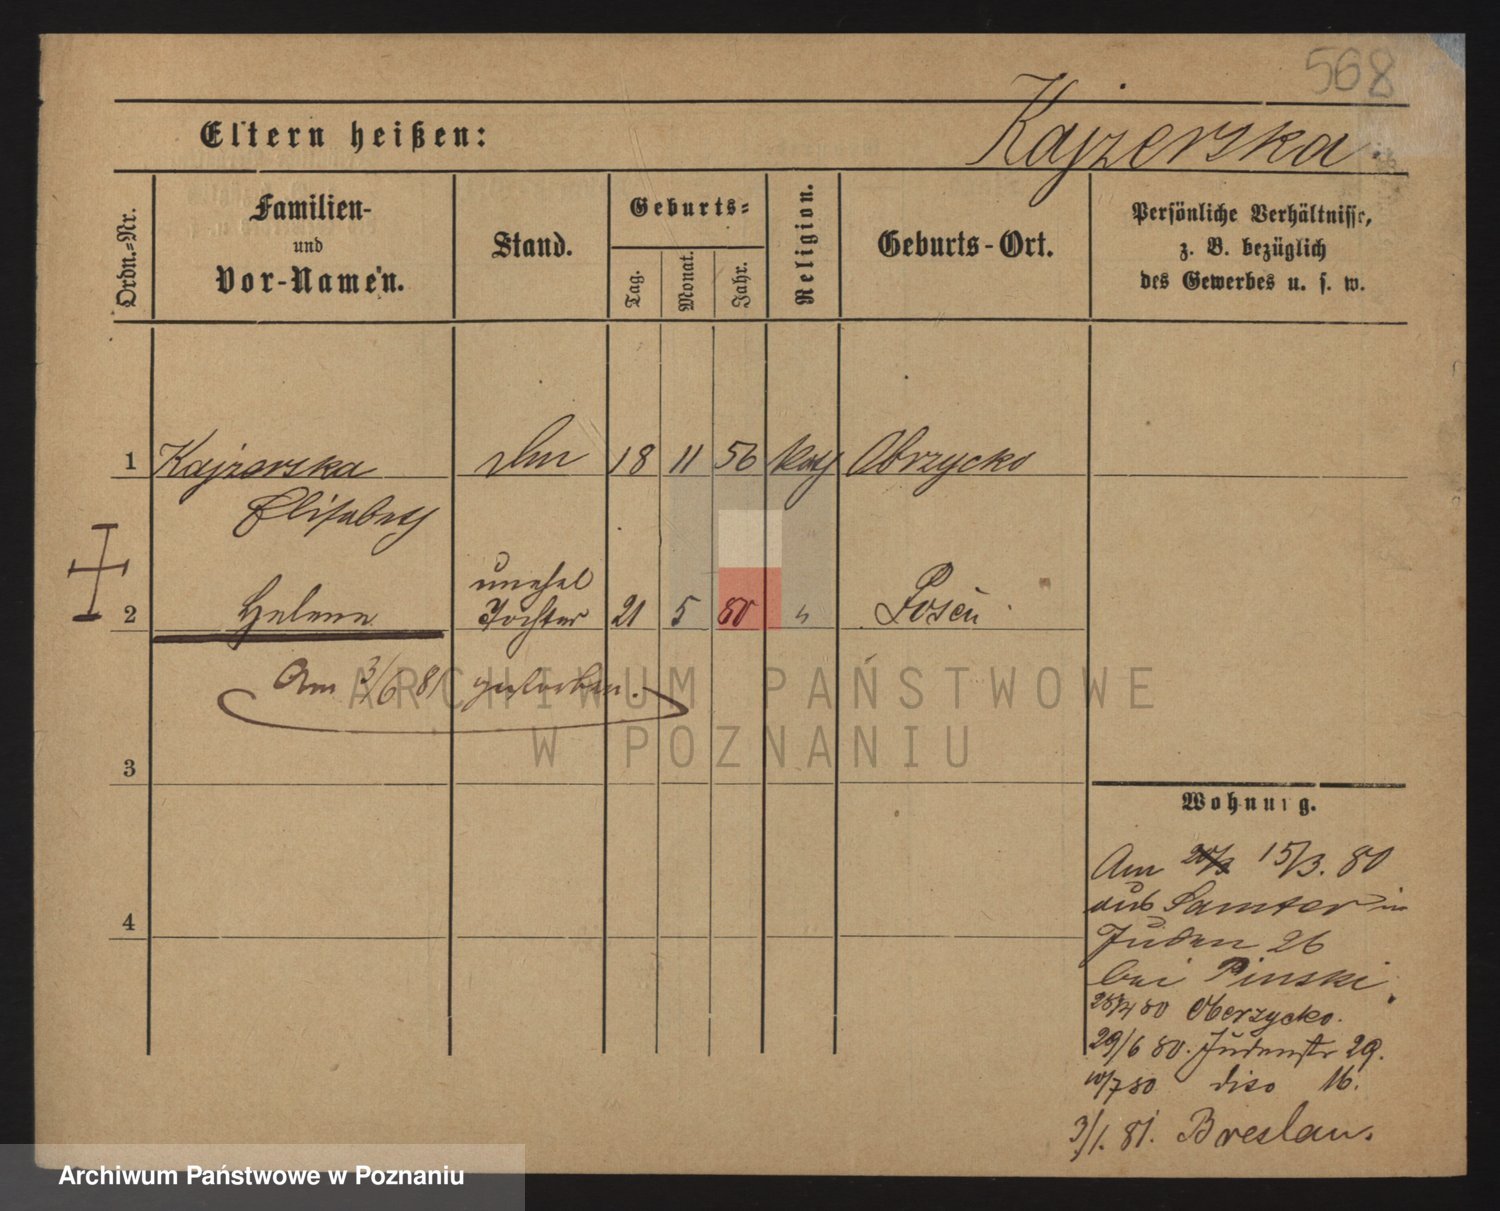 568
Eltern heißen: Kajzerska
Ordn.=Nr.
Familien-
und
Vor-Namen.
Stand.
Geburts=
Tag.
Monat.
Jahr.
Religion.
Geburts-Ort.
Persönliche Verhältnisse,
z. B. bezüglich
des Gewerbes u. s. w.
1 Kajzerska 18 11 56 kath Obrzycko
Elisabeth
unehel
2 Helene Tochter 21 5 80 " Posen
Am 3/6 81 gestorben.
3
4
ARCHIWUM PAŃSTWOWE
W POZNANIU
Wohnung.
Am 15/3. 80
aus Samter in
Juden 26
bei Pinski.
80 Oberzycko.
29/6 80. Judenstr 29.
10/7 80 dito 16.
3/1. 81. Breslau.
Archiwum Państwowe w Poznaniu